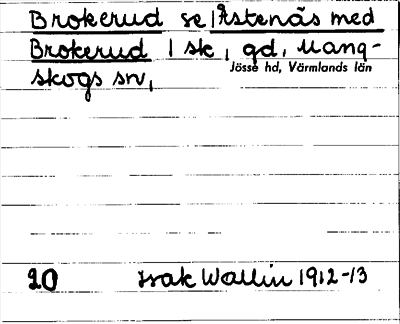 Brokerud se Åstenäs med
Brokerud 1 sk, gd, Mang-
skogs sn,
Jösse hd, Värmlands län
20 Isak Wallin 1912-13